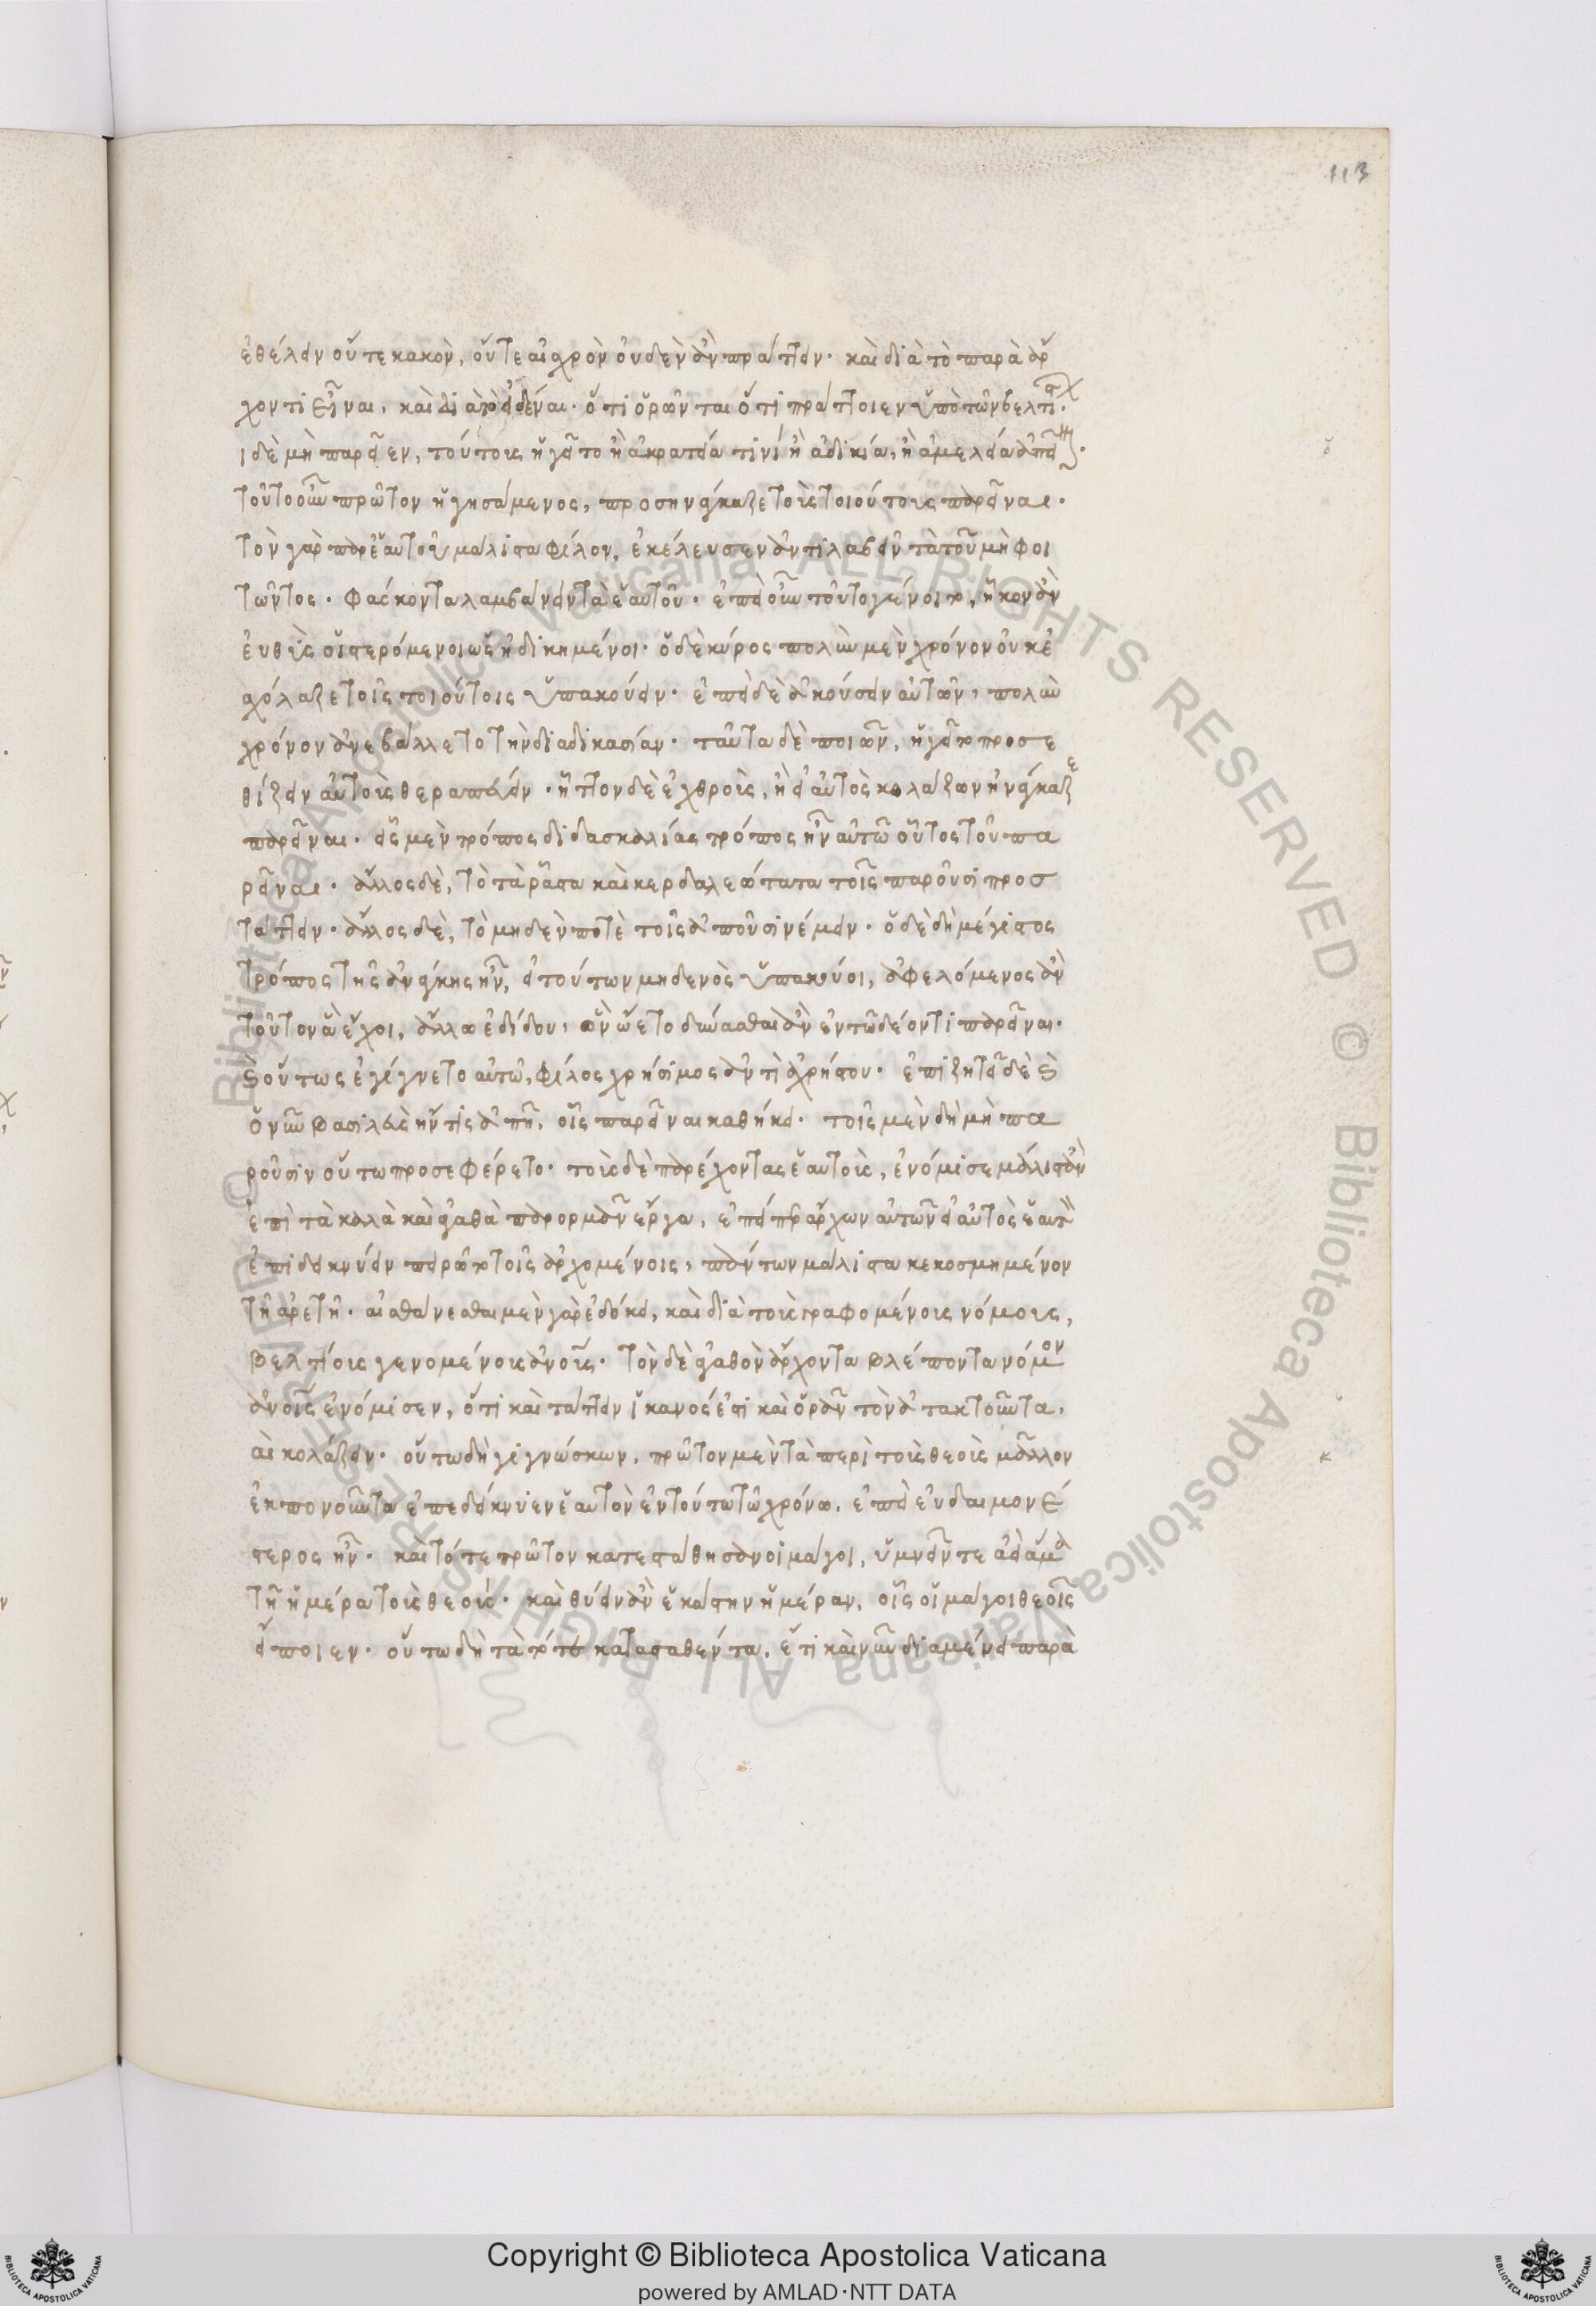 113
ἐθέλειν οὔτε κακὸν, οὔτε αἰσχρὸν οὐδὲν ἂν πράττειν· καὶ διὰ τὸ παρὰ ἄρ
χοντι εἶναι, καὶ διὰ τὸ εἰδέναι· ὅτι ὁρῶνται ὅτι πράττοιεν ὑπὸ τῶν βελτι
ι δὲ μὴ παρεῖεν, τούτους ἡγεῖτο ἢ ἀκρατεία τινὶ ἢ ἀδικία, ἢ ἀμελεία ἀπεῖ
τοῦτο οὖν πρῶτον ἡγησάμενος, προσηνάγκαζε τοὺς τοιούτους παρεῖναι·
τὸν γὰρ παρ' ἑαυτοῦ μάλιστα φίλον, ἐκέλευσεν ἂν τι λαβεῖν τὰ τοῦ μὴ φοι
τῶντος· φάσκοντα λαμβάνειν τὰ ἑαυτοῦ· ἐπεὶ οὖν τοῦτο γένοιτο, ἧκον ἂν
εὐθὺς οἱ στερόμενοι ὡς ἠδικημένοι· ὁ δὲ κύρος πολὺν μὲν χρόνον οὐκ ἐ
σχόλαζε τοῖς τοιούτοις ὑπακούειν· ἐπεὶ δὲ ἀκούσειεν αὐτῶν, πολὺν
χρόνον ἀνεβάλλετο τὴν διαδικασίαν· ταῦτα δὲ ποιῶν, ἡγεῖτο προσε
θίζειν αὐτοὺς θεραπεύειν· ἧττον δὲ ἐχθροὺς, ἢ εἰ αὐτὸς κολάζων ἠνάγκαζε
παρεῖναι· εἷς μὲν τρόπος διδασκαλίας τρόπος ἦν αὐτῶ οὗτος τοῦ πα
ρεῖναι· ἄλλος δὲ, τὸ τὰ ῥᾶστα καὶ κερδαλεώτατα τοῖς παροῦσι προσ
τάττειν· ἄλλος δὲ, τὸ μηδὲν ποτὲ τοῖς ἀποῦσι νέμειν· ὁ δὲ δὴ μέγιστος
τρόπος τῆς ἀνάγκης ἦν, εἰ τούτων μηδενὸς ὑπακούοι, ἀφελόμενος ἂν
τοῦτον ἃ ἔχοι, ἄλλω ἐδίδου, ὃν ᾤετο δύνασθαι ἂν ἐν τῶ δέοντι παρεῖναι·
ϛ οὕτως ἐγίγνετο αὐτῶ, φίλος χρήσιμος ἀντὶ ἀχρήστου· ἐπιζητεῖ δὲ ϛ
ὁ νῦν βασιλεὺς ἤν τις ἀπῆ, οἷς παρεῖναι καθήκει· τοῖς μὲν δὴ μὴ πα
ροῦσιν οὕτω προσεφέρετο· τοὺς δὲ παρέχοντας ἑαυτοὺς, ἐνόμισε μάλιστ' ἂν
ἐπὶ τὰ καλὰ καὶ ἀγαθὰ παρορμᾶν ἔργα, ἐπεὶ περ ἄρχων αὐτῶν εἰ αὐτὸς ἑαυτὸν
ἐπιδεικνύειν πειρῶτο τοῖς ἀρχομένοις, πάντων μάλιστα κεκοσμημένον
τῆ ἀρετῆ· αἰσθάνεσθαι μὲν γὰρ ἐδόκει, καὶ διὰ τοὺς γραφομένους νόμους,
βελτίους γενομένους ἀνους· τὸν δὲ ἀγαθὸν ἄρχοντα βλέποντα νόμον
ἀνοις ἐνόμισεν, ὅτι καὶ τάττειν ἱκανός ἐστι καὶ ὁρᾶν τὸν ἀτακτοῦντα,
αὶ κολάζειν· οὕτω δὴ γιγνώσκων, πρῶτον μὲν τὰ περὶ τοὺς θεοὺς μᾶλλον
ἐκπονοῦντα ἐπεδείκνυεν ἑαυτὸν ἐν τούτω τῶ χρόνω, ἐπεὶ εὐδαιμονέ
στερος ἦν· καὶ τότε πρῶτον κατεστάθησαν οἱ μάγοι, ὑμνεῖν τε ἀεὶ ἅμα
τῆ ἡμέρα τοὺς θεούς· καὶ θύειν ἂν ἑκάστην ἡμέραν, οἷς οἱ μάγοι θεοῖς
εἴποιεν· οὕτω δὴ τὰ τότε κατασταθέντα, ἔτι καὶ νῦν διαμένει παρὰ
Copyright © Biblioteca Apostolica Vaticana
powered by AMLAD·NTT DATA